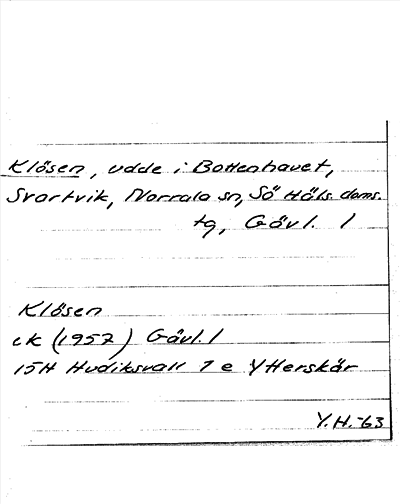 Klösen, udde i Bottenhavet,
Svartvik, Norrala sn, Sö Häls. doms.
tg, Gävl. l
Klösen
ek (1957) Gävl. l
15H Hudiksvall 7 e Ytterskär
Y.H.-63